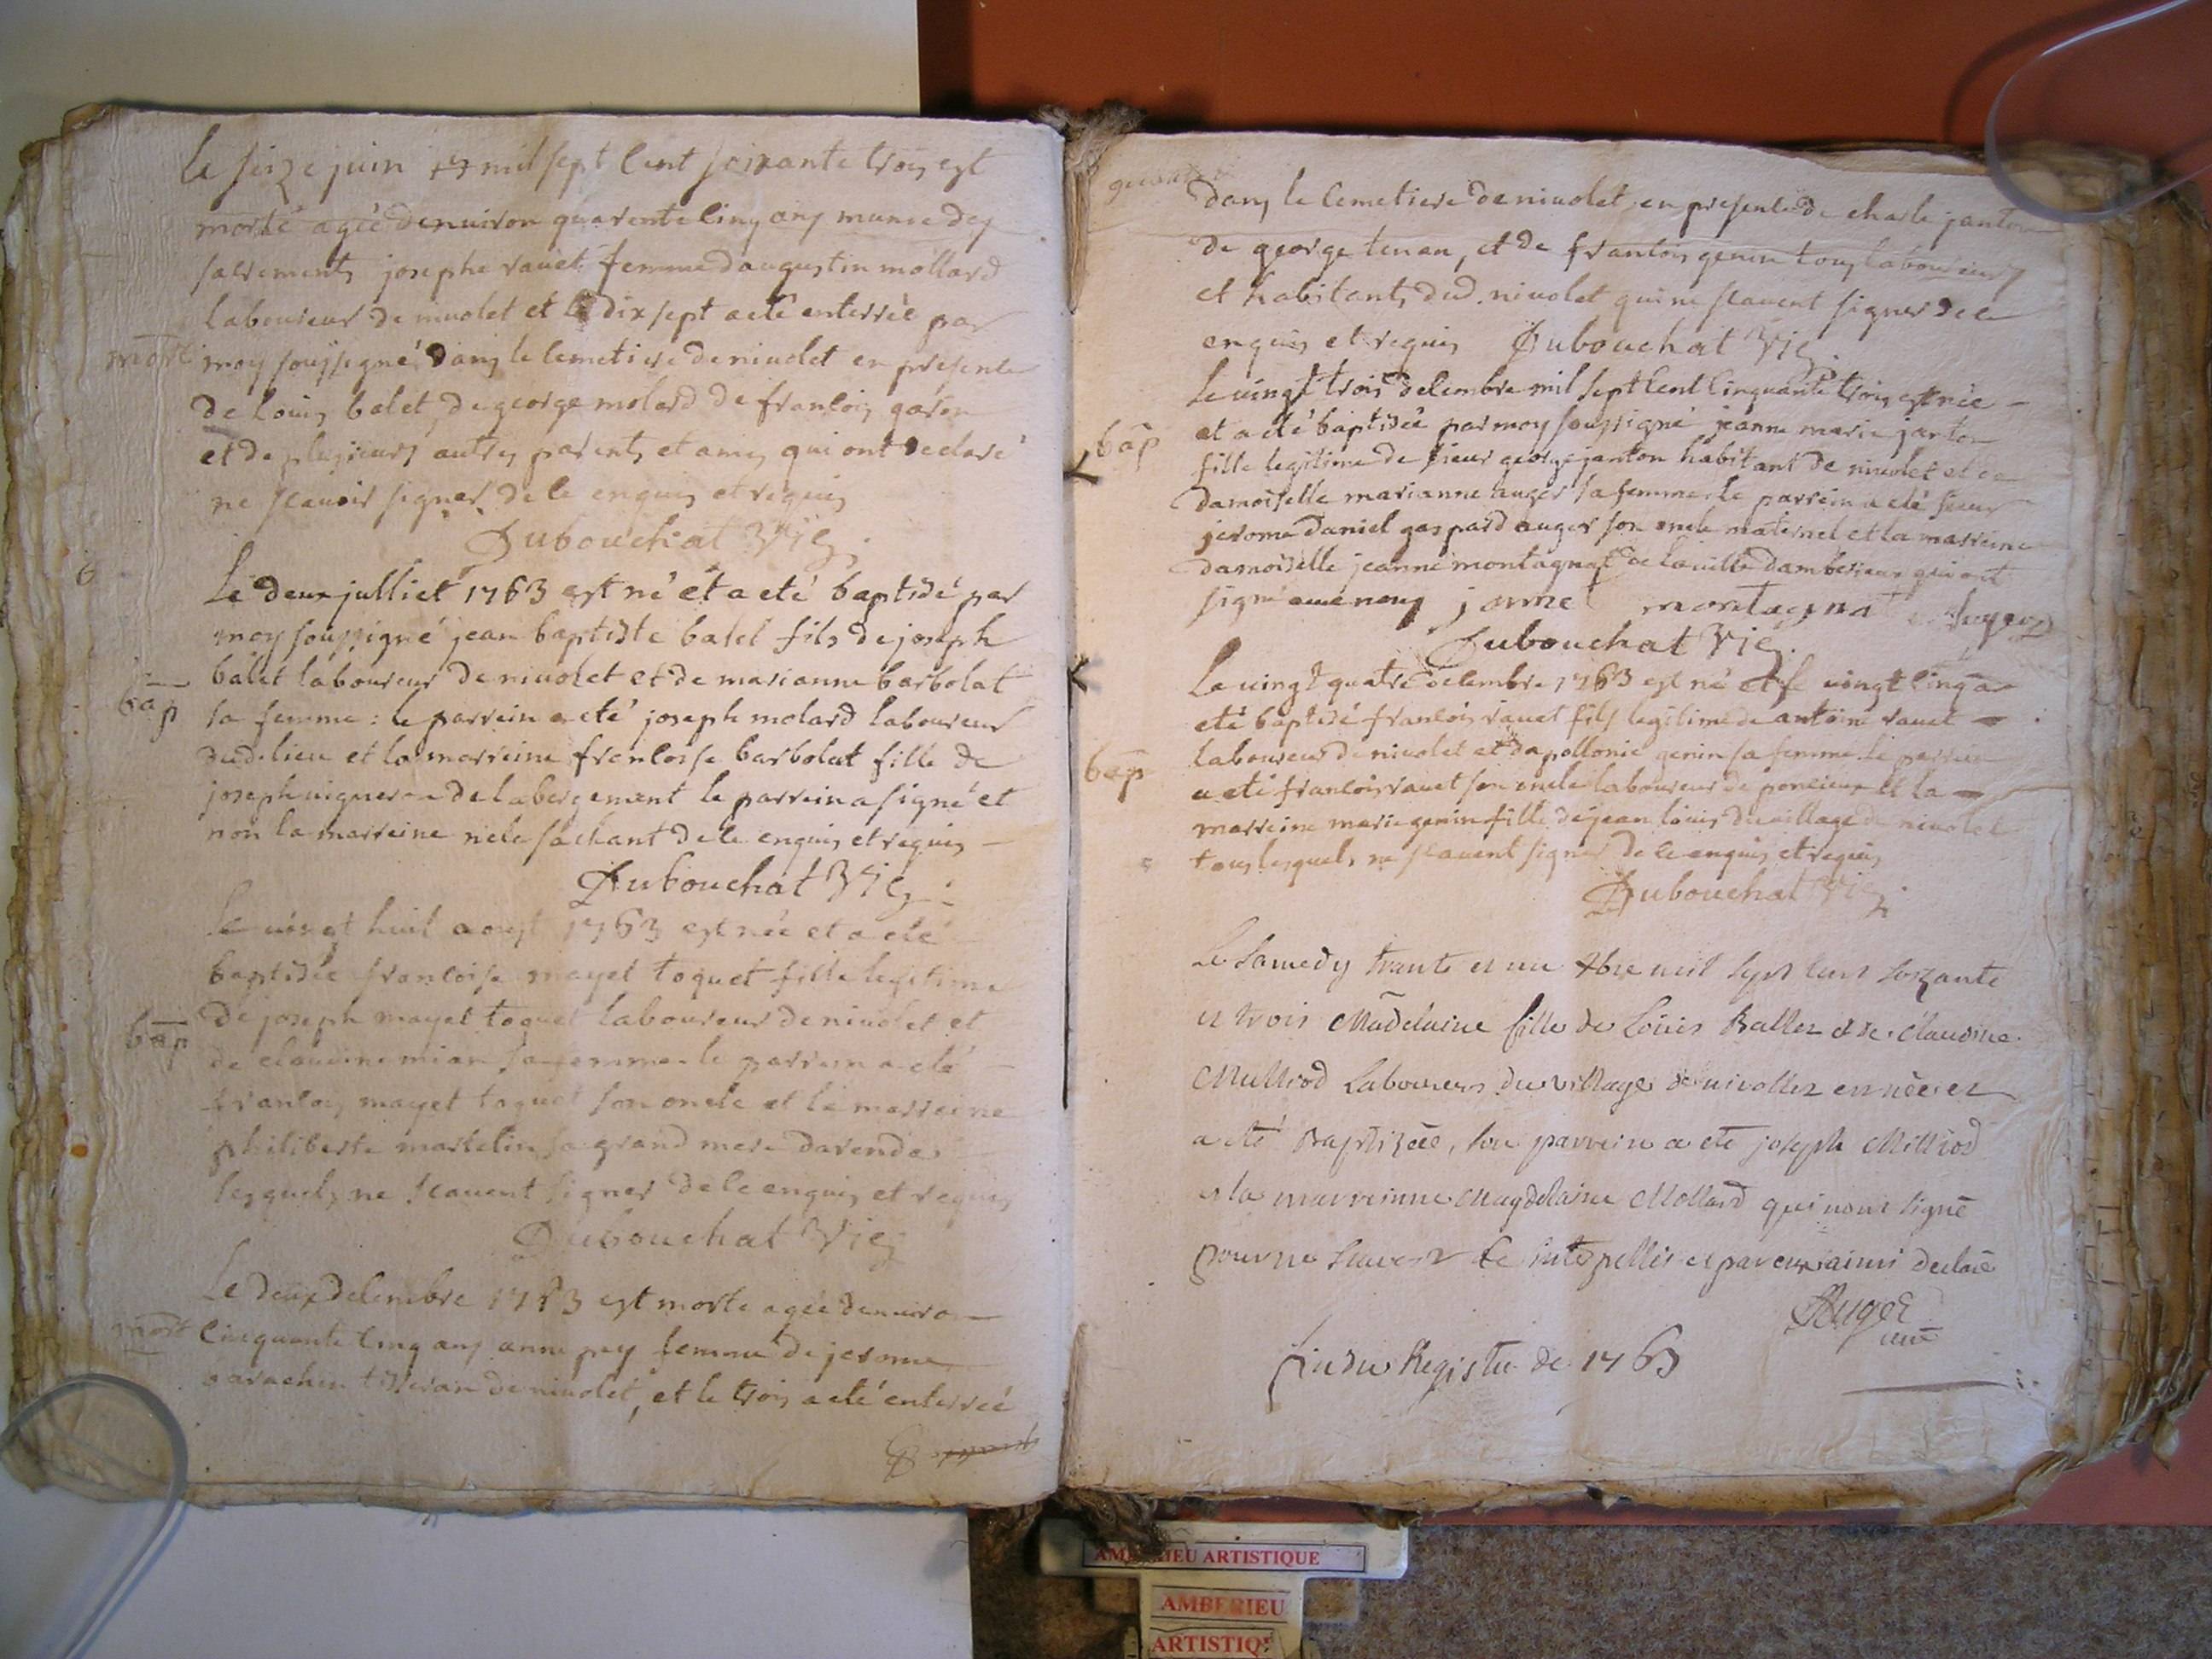 le seize juin mil sept cent soixante trois est
morte agée denuiron quarente cinq ans munie des
sacrements josephe rauet femme daugustin mollard
laboureur de niuolet et le dix sept a eté enterrée par
mort
moy soussigné dans le cemetiere de niuolet en presence
de louis balet, de george molard de francois
et de plusieurs autres parents et amis qui ont declaré
ne scauoir signer de ce enquis et requis
Dubouchat Vic.
Le deux julliet 1763 est né et a eté baptisé par
moy soussigné jean baptiste balet fils de joseph
balet laboureur de niuolet et de marianne barbolat
bap
sa femme : le parrein a eté joseph molard laboureur
dud. lieu et la marreine francoise barbolat fille de
joseph uigneron de labergement le parrein a signé et
non la marreine ne le sachant de ce enquis et requis
Dubouchat Vic.
le uingt huit aoust 1763 est née et a eté
baptisée francoise mayet toquet fille legitime
bap
de joseph mayet toquet laboureur de niuolet et
de claudine mian sa femme le parrein a eté
francois mayet toquet son oncle et la marreine
philiberte martelin sa grand mere
lesquels ne scauent signer de ce enquis et requis
Dubouchat Vic.
Le deux decembre 1763 est morte agée denuiron
mort
cinquante cinq ans anne pey femme de jerome
tisseran de niuolet, et le trois a eté enterreé
dans le cemetiere de niuolet en presence de charle janton
de george tenan, et de francois genin tous laboureurs
et habitants dud. niuolet qui ne scauent signer de ce
enquis et requis Dubouchat Vic.
Le uingt trois decembre mil sept cent cinquante trois est née
bap
et a eté baptisée par moy soussigné jeanne marie janton
fille legitime de sieur george janton habitant de niuolet et de
damoiselle marianne auger sa femme le parrein a eté sieur
jerome daniel gaspard auger son oncle maternel et la marreine
damoiselle jeanne montagnat de la uille damberieux qui ont
signé auec nous janne montagnat auger
Dubouchat Vic.
Le uingt quatre decembre 1763 est né et le uingt cinq a
eté baptisé francois rauet fils legitime de antoine rauet
laboureur de niuolet et dapollonie genin sa femme le parrein
bap
a eté francois rauet son oncle laboureur de poncieux et la
marreine marie genin fille de jean louis du uillage de niuolet
tous lesquels ne scauent signer de ce enquis et requis
Dubouchat Vic.
Le Samedy trante et un Xbre mil sept cent soixante
et trois Madelaine fille de Louis Ballet et de Claudine
Milliod Laboureurs du village de nivollet est née et
a eté Baptizéé, son parrein a eté joseph Milliod
et la marreinne Magdelaine Mollard qui n'ont signé
pour ne scavoir de ce interpellés et par eux ainsi declaré
Auger
curé
fin du Registre de 1763
AMBERIEU ARTISTIQUE
AMBERIEU
ARTISTIQ